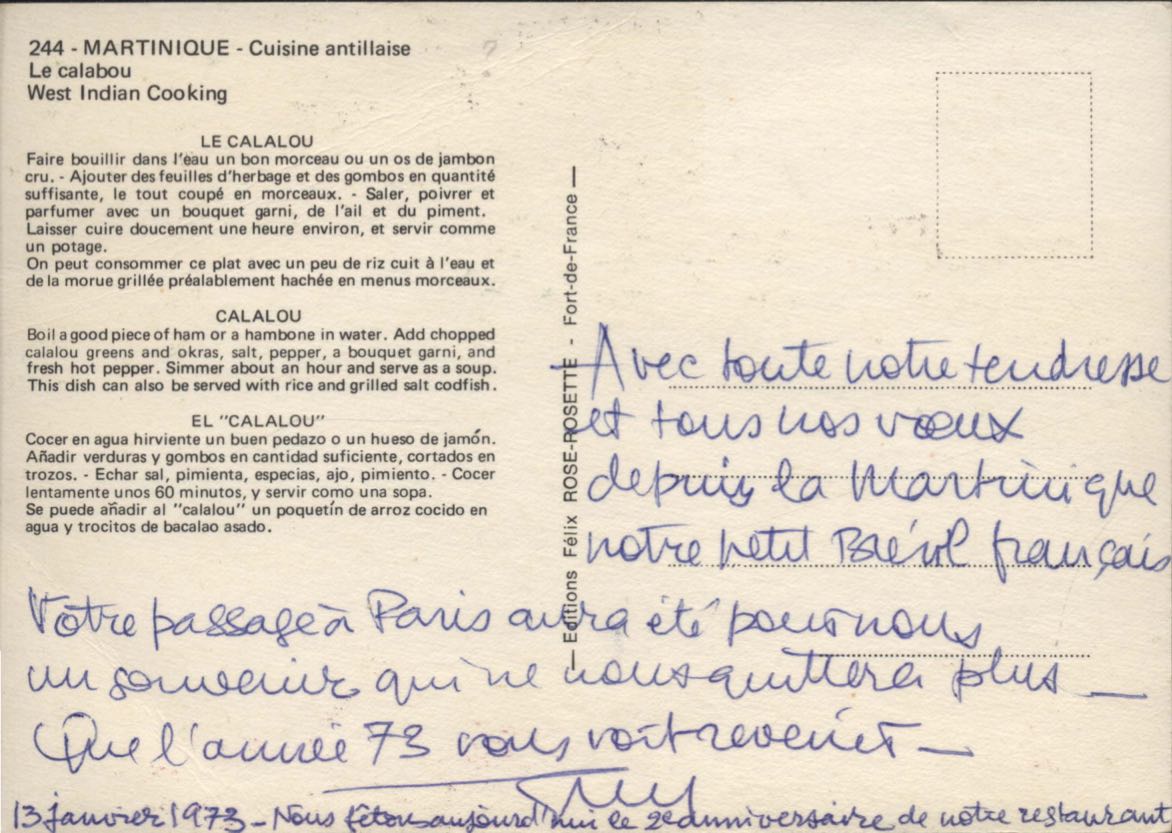 244 - MARTINIQUE - Cuisine antillaise
Le calabou
West Indian Cooking
LE CALALOU
Faire bouillir dans l'eau un bon morceau ou un os de jambon
cru. - Ajouter des feuilles d'herbage et des gombos en quantité
suffisante, le tout coupé en morceaux. - Saler, poivrer et
parfumer avec un bouquet garni, de l'ail et du piment.
Laisser cuire doucement une heure environ, et servir comme
un potage.
On peut consommer ce plat avec un peu de riz cuit à l'eau et
de la morue grillée préalablement hachée en menus morceaux.
CALALOU
Boil a good piece of ham or a hambone in water. Add chopped
calalou greens and okras, salt, pepper, a bouquet garni, and
fresh hot pepper. Simmer about an hour and serve as a soup.
This dish can also be served with rice and grilled salt codfish.
EL "CALALOU"
Cocer en agua hirviente un buen pedazo o un hueso de jamón.
Añadir verduras y gombos en cantidad suficiente, cortados en
trozos. - Echar sal, pimienta, especias, ajo, pimiento. - Cocer
lentamente unos 60 minutos, y servir como una sopa.
Se puede añadir al "calalou" un poquetín de arroz cocido en
agua y trocitos de bacalao asado.
— Editions Félix ROSE-ROSETTE - Fort-de-France —
Avec toute notre tendresse
et tous nos vœux
depuis la Martinique
notre petit Brésil français
Votre passage à Paris aura été pour nous
un souvenir qui ne nous quittera plus —
Que l'année 73 vous voit revenir —
13 janvier 1973 - Nous fêtons aujourd'hui le 2e anniversaire de notre restaurant